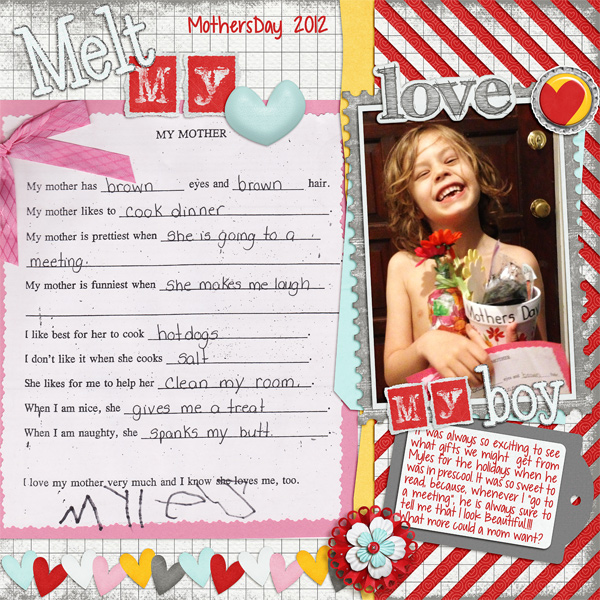 MothersDay 2012
Melt
My
love
MY MOTHER
My mother has brown eyes and brown hair.
My mother likes to cook dinner.
My mother is prettiest when she is going to a
meeting.
My mother is funniest when she makes me laugh
I like best for her to cook hotdogs.
I don't like it when she cooks salt.
She likes for me to help her clean my room.
When I am nice, she gives me a treat.
When I am naughty, she spanks my butt.
I love my mother very much and I know she loves me, too.
MYLES
Mothers Day
My
boy
It was always so exciting to see
what gifts we might get from
Myles for the holidays when he
was in prescool. It was so sweet to
read, because, whenever I "go to
a meeting", he is always sure to
tell me that I look Beautiful!!!
What more could a mom want?